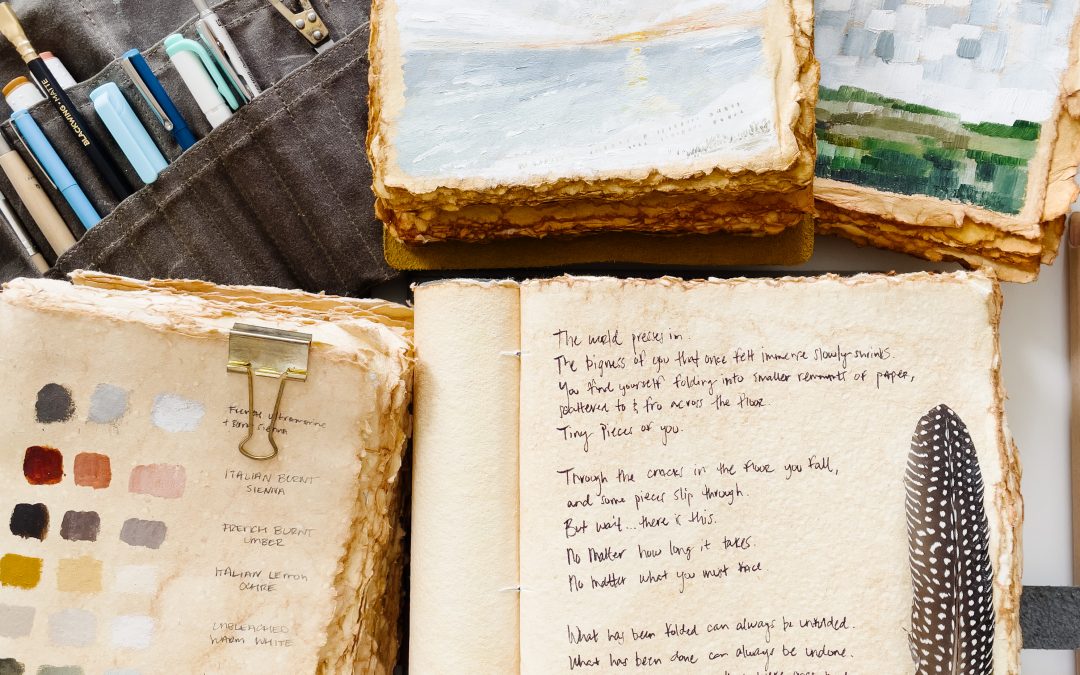 BLACKWING-MATTE
French Ultramarine
+ Burnt Sienna
ITALIAN BURNT
SIENNA
FRENCH BURNT
UMBER
ITALIAN LEMON
OCHRE
UNBLEACHED
WARM WHITE
The world presses in.
The bigness of you that once felt immense slowly shrinks.
You find yourself folding into smaller remnants of paper,
scattered to & fro across the floor.
Tiny pieces of you.
Through the cracks in the floor you fall,
and some pieces slip through.
But wait... there is this.
No matter how long it takes.
No matter what you must face.
What has been folded can always be unfolded.
What has been done can always be undone.